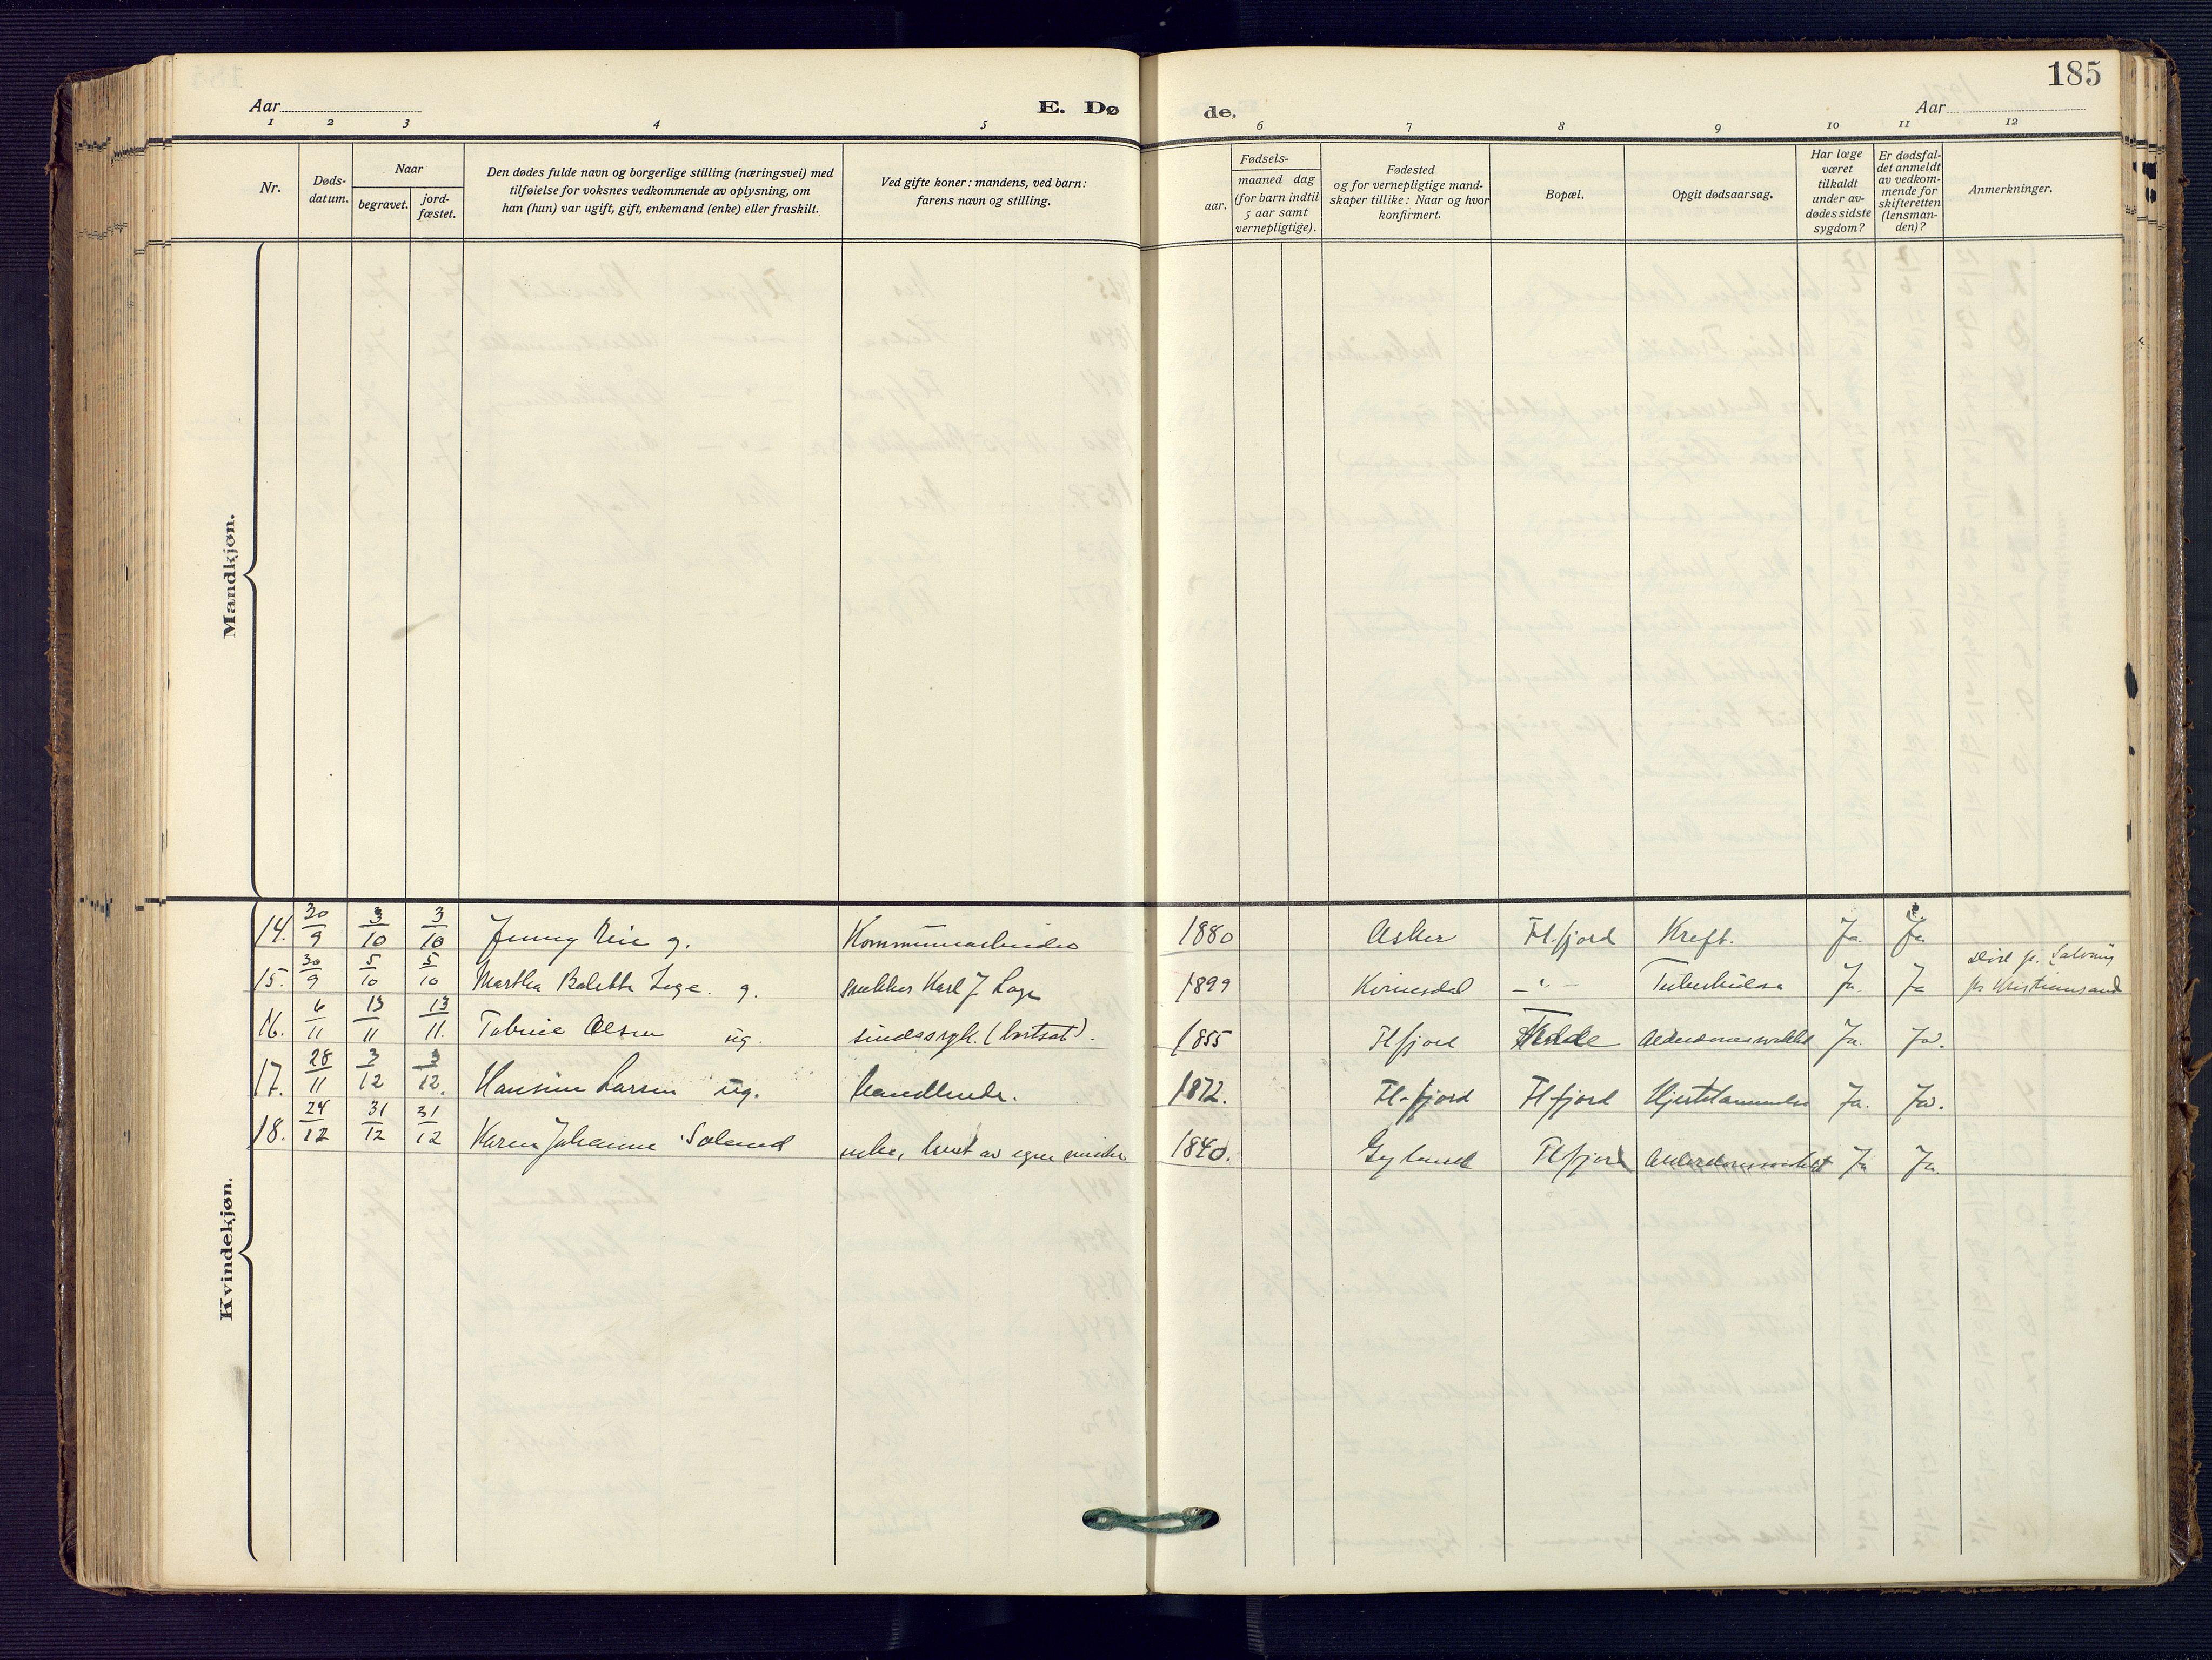 185
Aar
E. Dø
de.
Aar
1 2 3 4 5 6 7 8 9 10 11 12
Nr.
Døds-
datum.
Naar
begravet.
jord-
fæstet.
Den dødes fulde navn og borgerlige stilling (næringsvei) med
tilføielse for voksnes vedkommende av oplysning, om
han (hun) var ugift, gift, enkemand (enke) eller fraskilt.
Ved gifte koner: mandens, ved barn:
farens navn og stilling.
Fødsels-
aar.
maaned dag
(for barn indtil
5 aar samt
vernepligtige).
Fødested
og for vernepligtige mand-
skaper tillike: Naar og hvor
konfirmert.
Bopæl.
Opgit dødsaarsag.
Har læge
været
tilkaldt
under av-
dødes sidste
sygdom?
Er dødsfal-
det anmeldt
av vedkom-
mende for
skifteretten
(lensman-
den)?
Anmerkninger.
Mandkjøn.
Kvindekjøn.
14. 30/9 3/10 3/10 Jenny g. Kommunearbeider 1880 Asker Fl.fjord Kreft. Ja Ja
15. 30/9 5/10 5/10 Martha Bolette Lege g. snekker Karl J Lege 1899 Kvinesdal —"— Tuberkulose Ja Ja
Død p.
p. Kristiansand
16. 6/11 13/11 13/11. Tobine Olsen ug. sindssyk. (bortsat). 1855 Fl.fjord Fedde Alderdomssvakhet Ja. Ja.
17. 28/11 3/12 3/12. Hansine Larsen ug. handlende. 1872. Fl.fjord Fl.fjord Hjertelammelse Ja. Ja.
18. 24/12 31/12 31/12 Karen Johanne Solund enke, levet av egne midler 1840. Gyland Fl.fjord Alderdomssvakhet Ja Ja.